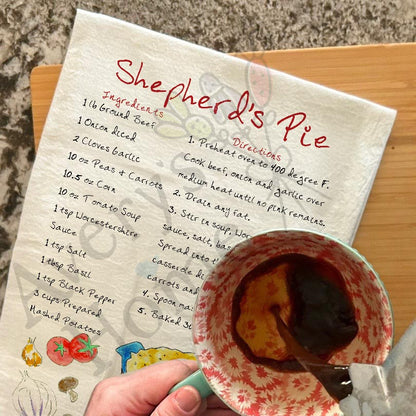 Shepherd's Pie
Ingredients
1 lb Ground Beef
1 Onion diced
2 Cloves Garlic
10 oz Peas & Carrots
10.5 oz Corn
10 oz Tomato Soup
1 tsp Worcestershire
Sauce
1 tsp Salt
1 tbsp Basil
1 tsp Black Pepper
3 cups Prepared
Mashed Potatoes
Directions
1. Preheat oven to 400 degree F.
Cook beef, onion and garlic over
medium heat until no pink remains.
2. Drain any fat.
3. Stir in soup, Wor
sauce, salt, bas
Spread into th
casserole di
carrots and
4. Spoon mas
5. Baked 30